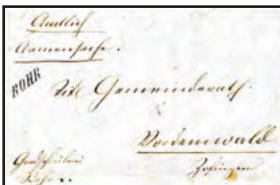 Amtlich
Armensache.
ROHR
Tit. Gemeinderath
Vordemwald
Zofingen
Rohr.